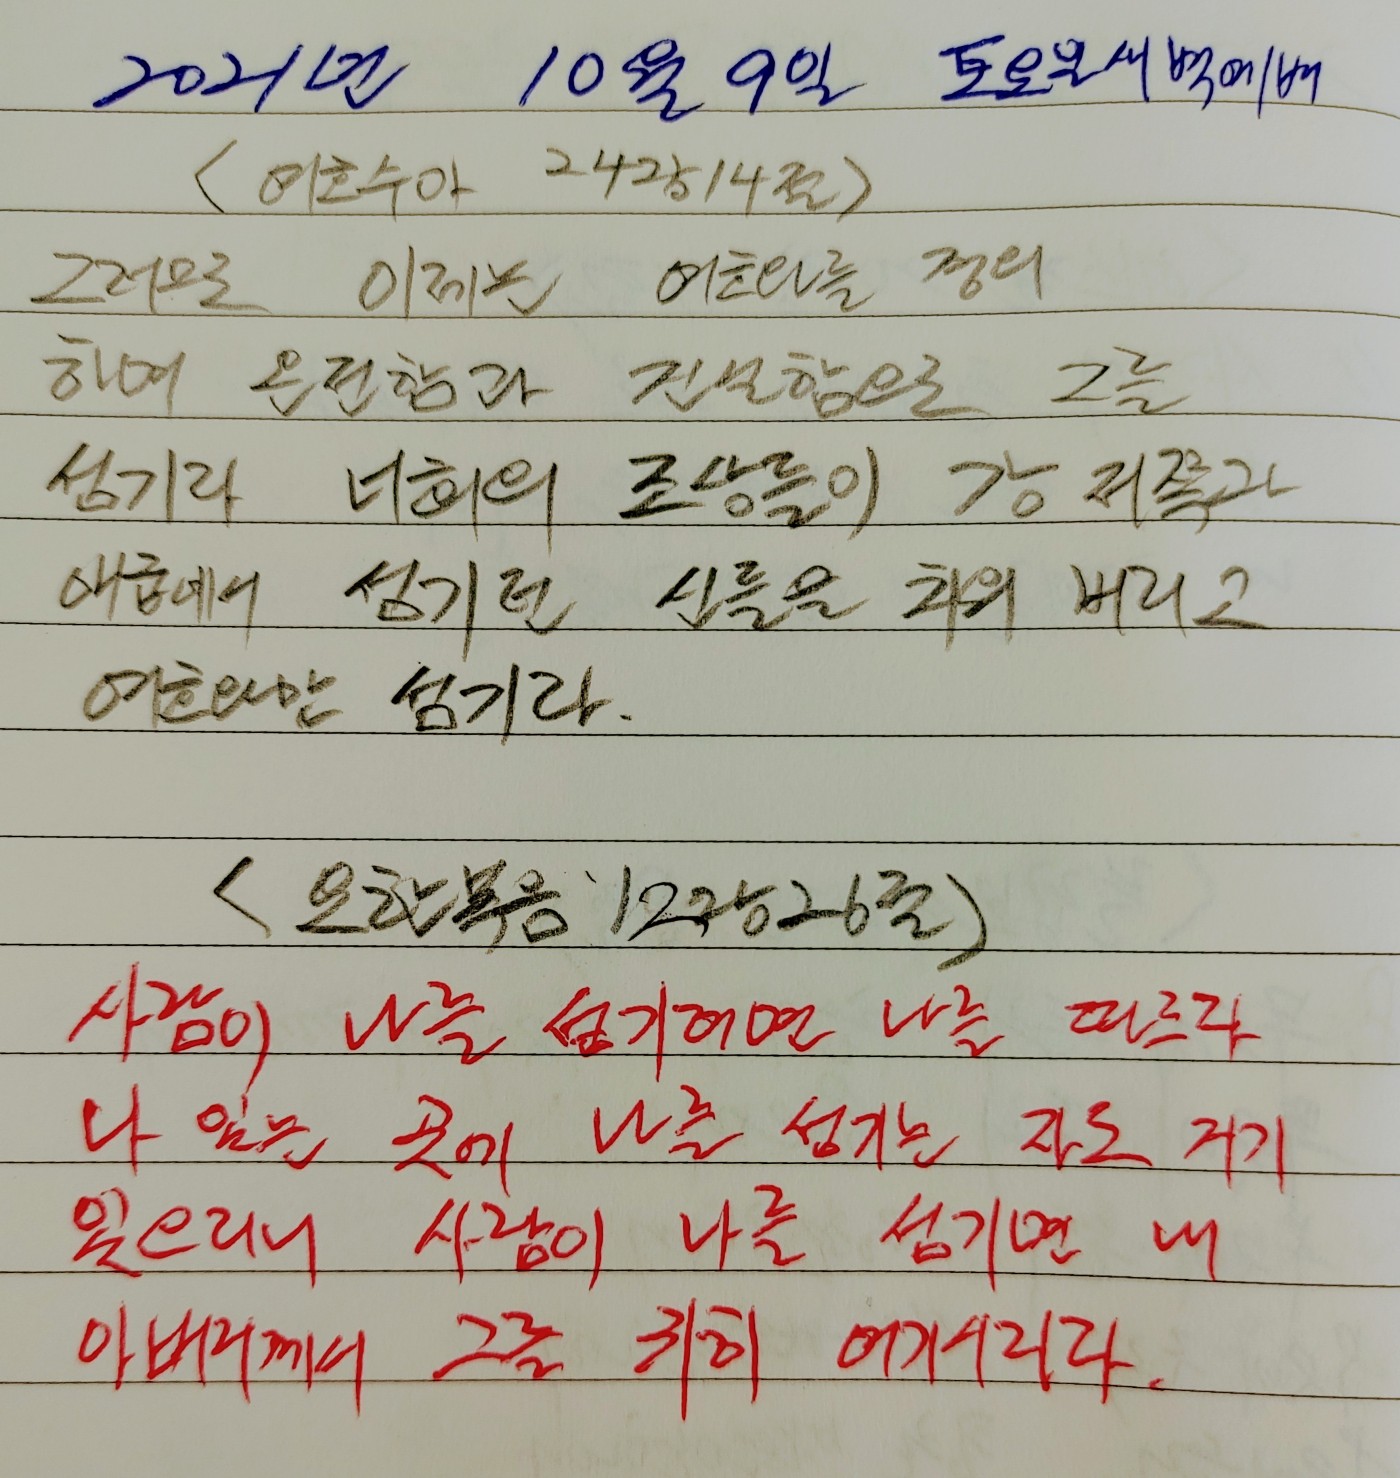 2021년 10월 9일 토요일새벽예배
<여호수아 24장14절>
그러므로 이제는 여호와를 경외
하며 온전함과 진실함으로 그를
섬기라 너희의 조상들이 강 저쪽과
애굽에서 섬기던 신들을 치워 버리고
여호와만 섬기라.
<요한복음 12장26절>
사람이 나를 섬기려면 나를 따르라
나 있는 곳에 나를 섬기는 자도 거기
있으리니 사람이 나를 섬기면 내
아버지께서 그를 귀히 여기시리라.